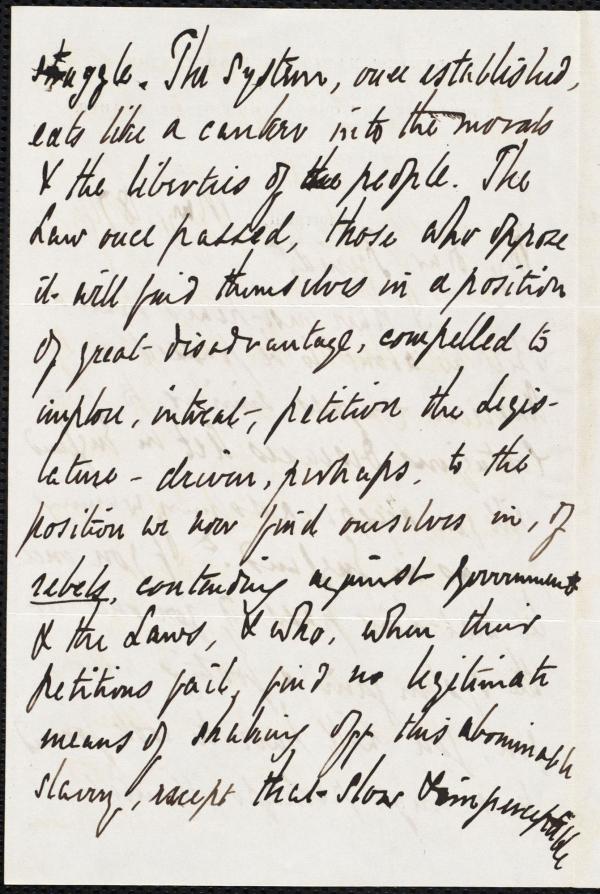 struggle. The System, once established,
eats like a canker into the morals
& the liberties of the people. The
Law once passed, those who oppose
it will find themselves in a position
of great disadvantage, compelled to
implore, intreat, petition the Legis-
lature - driven, perhaps, to the
position we now find ourselves in, of
rebels, contending against government
& the Laws, & who, when their
petitions fail, find no legitimate
means of shaking off this abominable
slavery, except that slow & imperceptible